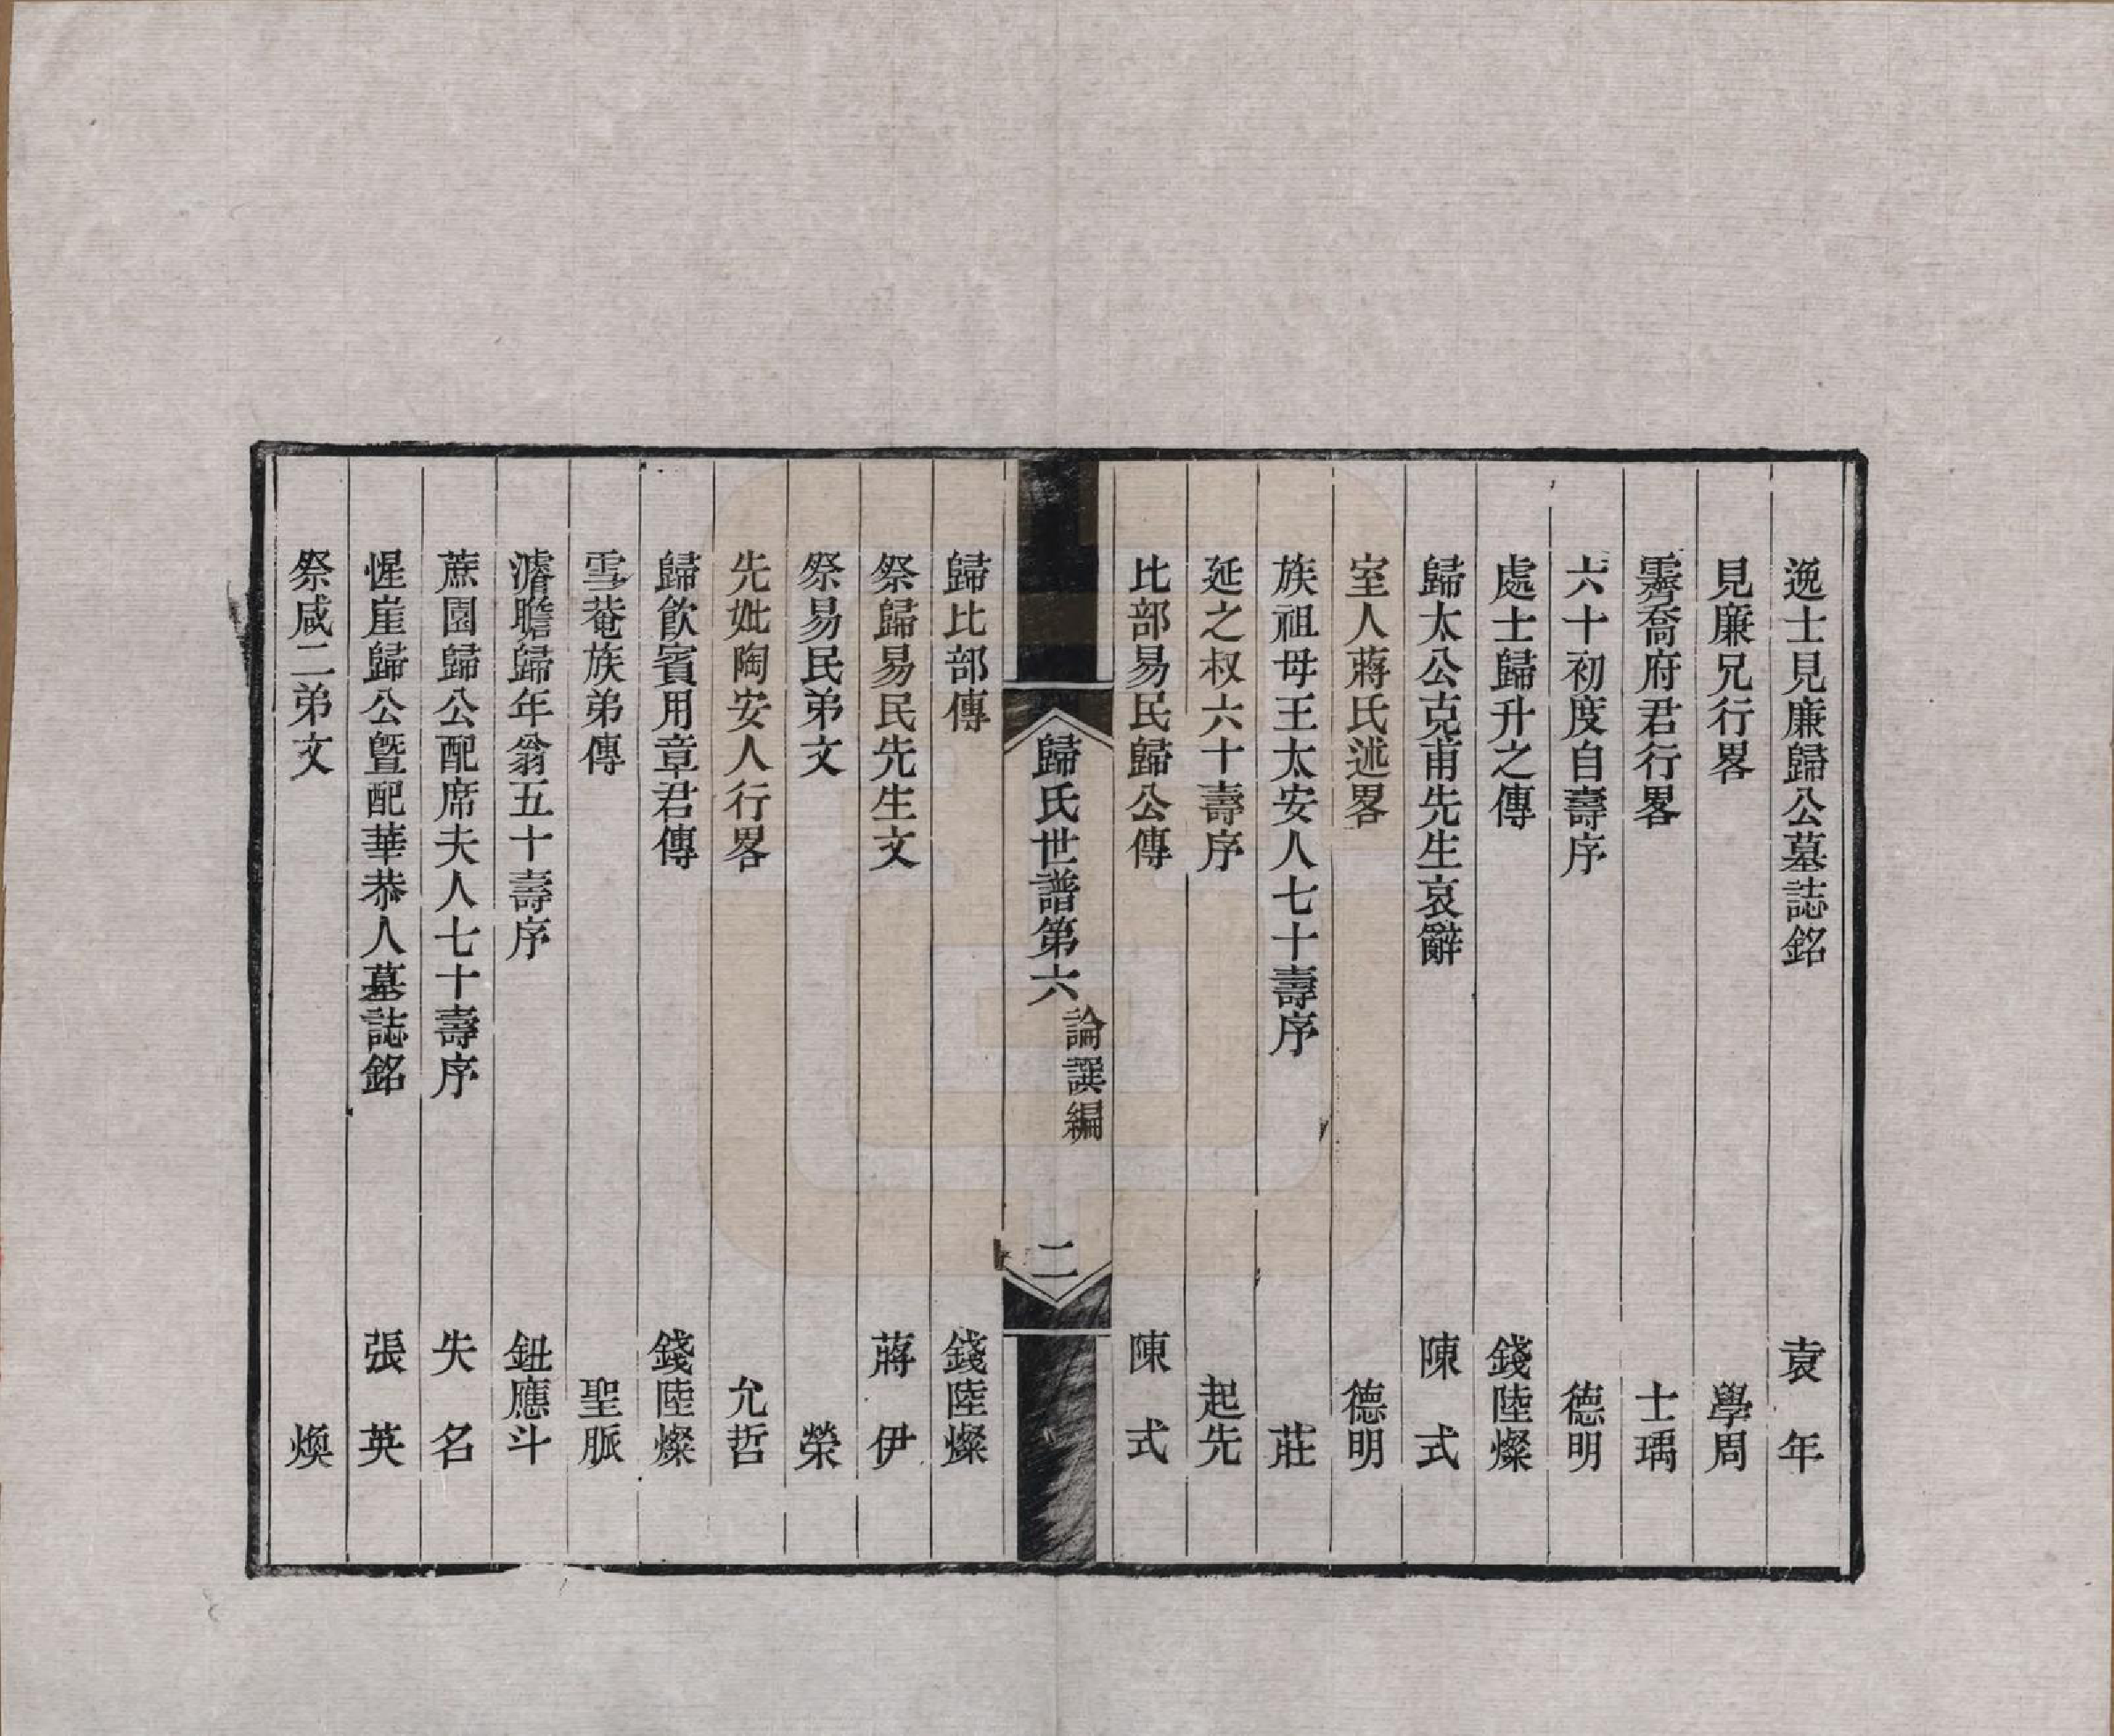 逸士見廉歸公墓誌銘 袁年
見廉兄行畧 學周
霽喬府君行畧 士瑀
六十初度自壽序 德明
處士歸升之傳 錢陸燦
歸太公克甫先生哀辭 陳式
室人蔣氏述畧 德明
族祖母王太安人七十壽序 莊
延之叔六十壽序 起先
比部易民歸公傳 陳式
歸氏世譜第六 論譔編 二
歸比部傳 錢陸燦
祭歸易民先生文 蔣伊
祭易民弟文 榮
先妣陶安人行畧 允哲
歸飮賓用章君傳 錢陸燦
雪菴族弟傳 聖脈
濬瞻歸年翁五十壽序 鈕應斗
蔗園歸公配席夫人七十壽序 失名
惺崖歸公曁配華恭人墓誌銘 張英
祭咸二弟文 煥